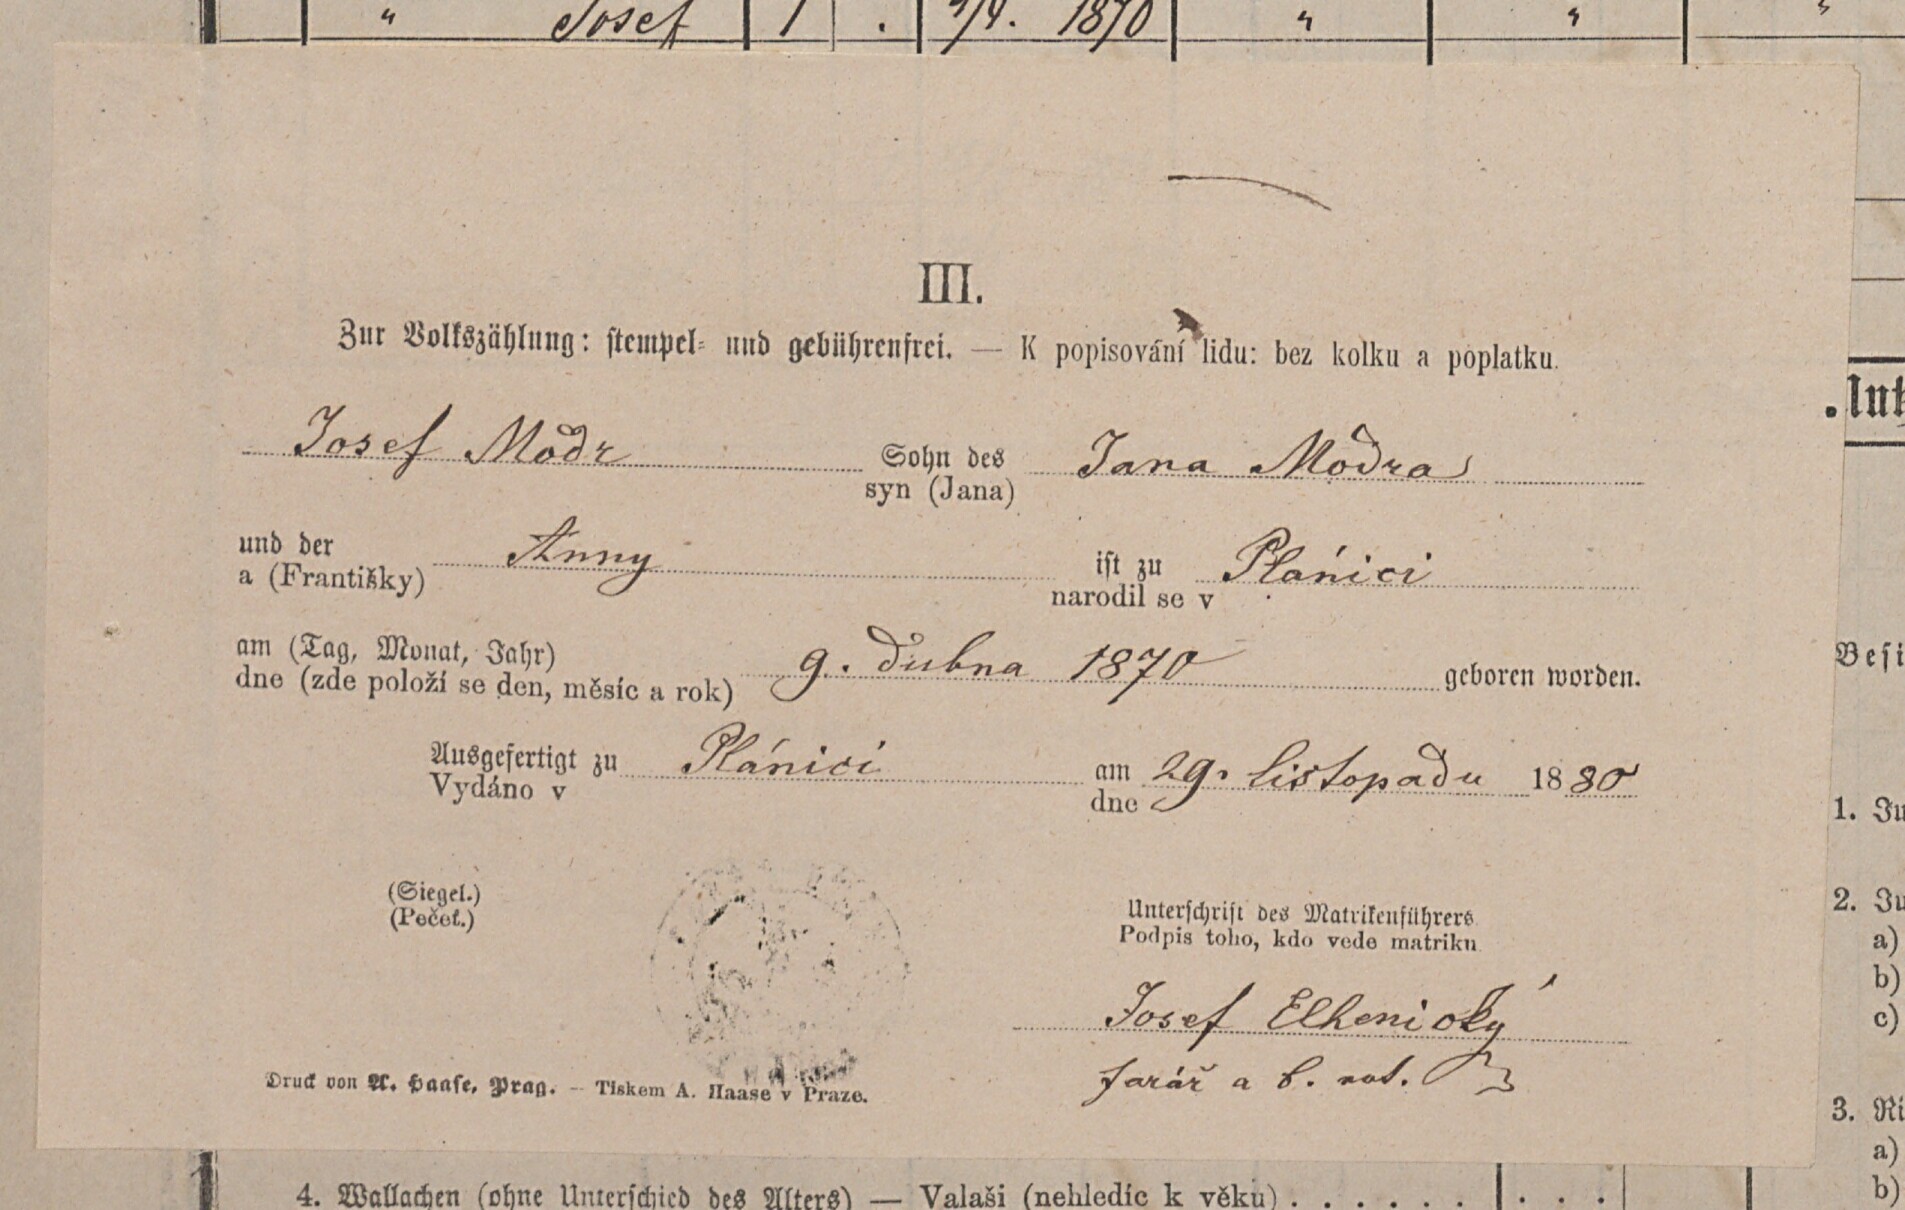 " Josef 1 . 9/4. 1870 " " "
III.
Zur Volkszählung: stempel- und gebührenfrei. — K popisování lidu: bez kolku a poplatku.
Josef Modr Sohn des Jana Modra
syn (Jana)
und der Anny ist zu Plánici
a (Františky) narodil se v
am (Tag, Monat, Jahr) 9. dubna 1870 geboren worden.
dne (zde položí se den, měsíc a rok)
Ausgefertigt zu Plánici am 29. listopadu 1880
Vydáno v dne
(Siegel.)
(Pečeť.)
Unterschrift des Matrikenführers
Podpis toho, kdo vede matriku
Josef Elhenický
farář a b. not.
Druck von A. Haase, Prag. — Tiskem A. Haase v Praze.
4. Wallachen (ohne Unterschied des Alters) — Valaši (nehledíc k věku) . . . . . . . . .
1.
2.
a)
b)
c)
3.
a)
b)